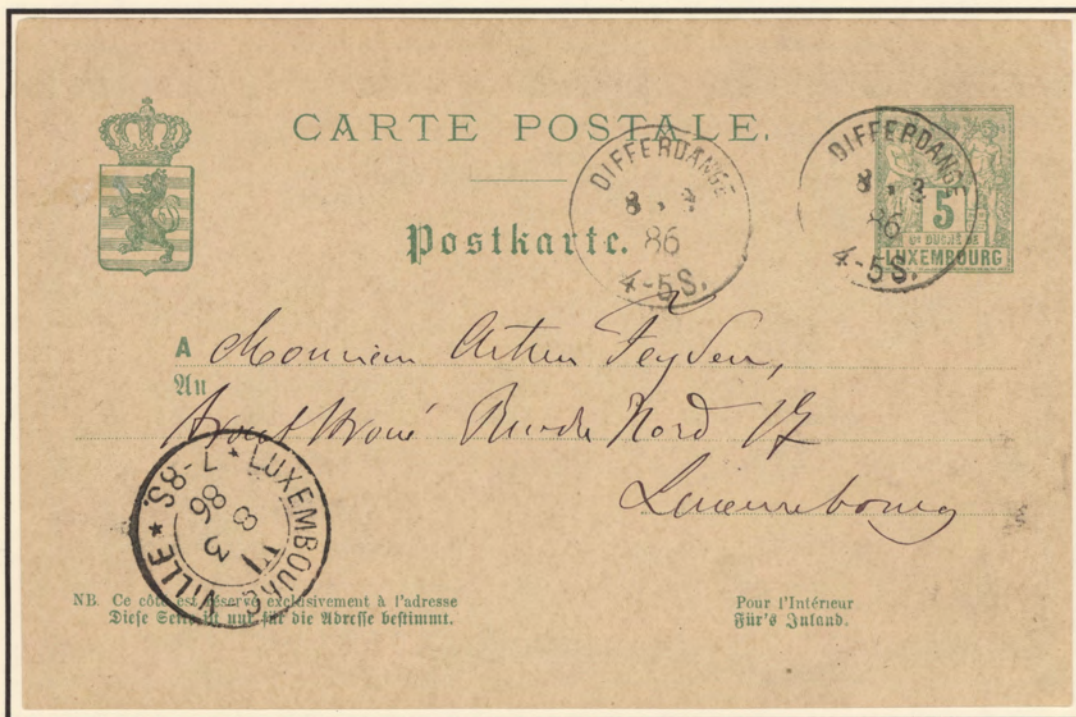 CARTE POSTALE.
DIFFERDANGE
8 . 3
86
4-5 S.
DIFFERDANGE
8 . 3
86
4-5 S.
5
Gd DUCHÉ DE
LUXEMBOURG
Postkarte.
A Monsieur Arthur Feyden,
An
Rue du Nord 17
Luxembourg
LUXEMBOURG-VILLE * 7-8S. *
8
3
86
NB. Ce côté est réservé exclusivement à l'adresse
Diese Seite ist nur für die Adresse bestimmt.
Pour l'Intérieur
Für's Inland.